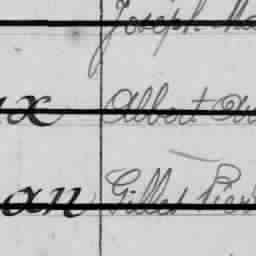 Joseph
ux Albert
an Gilles Pier